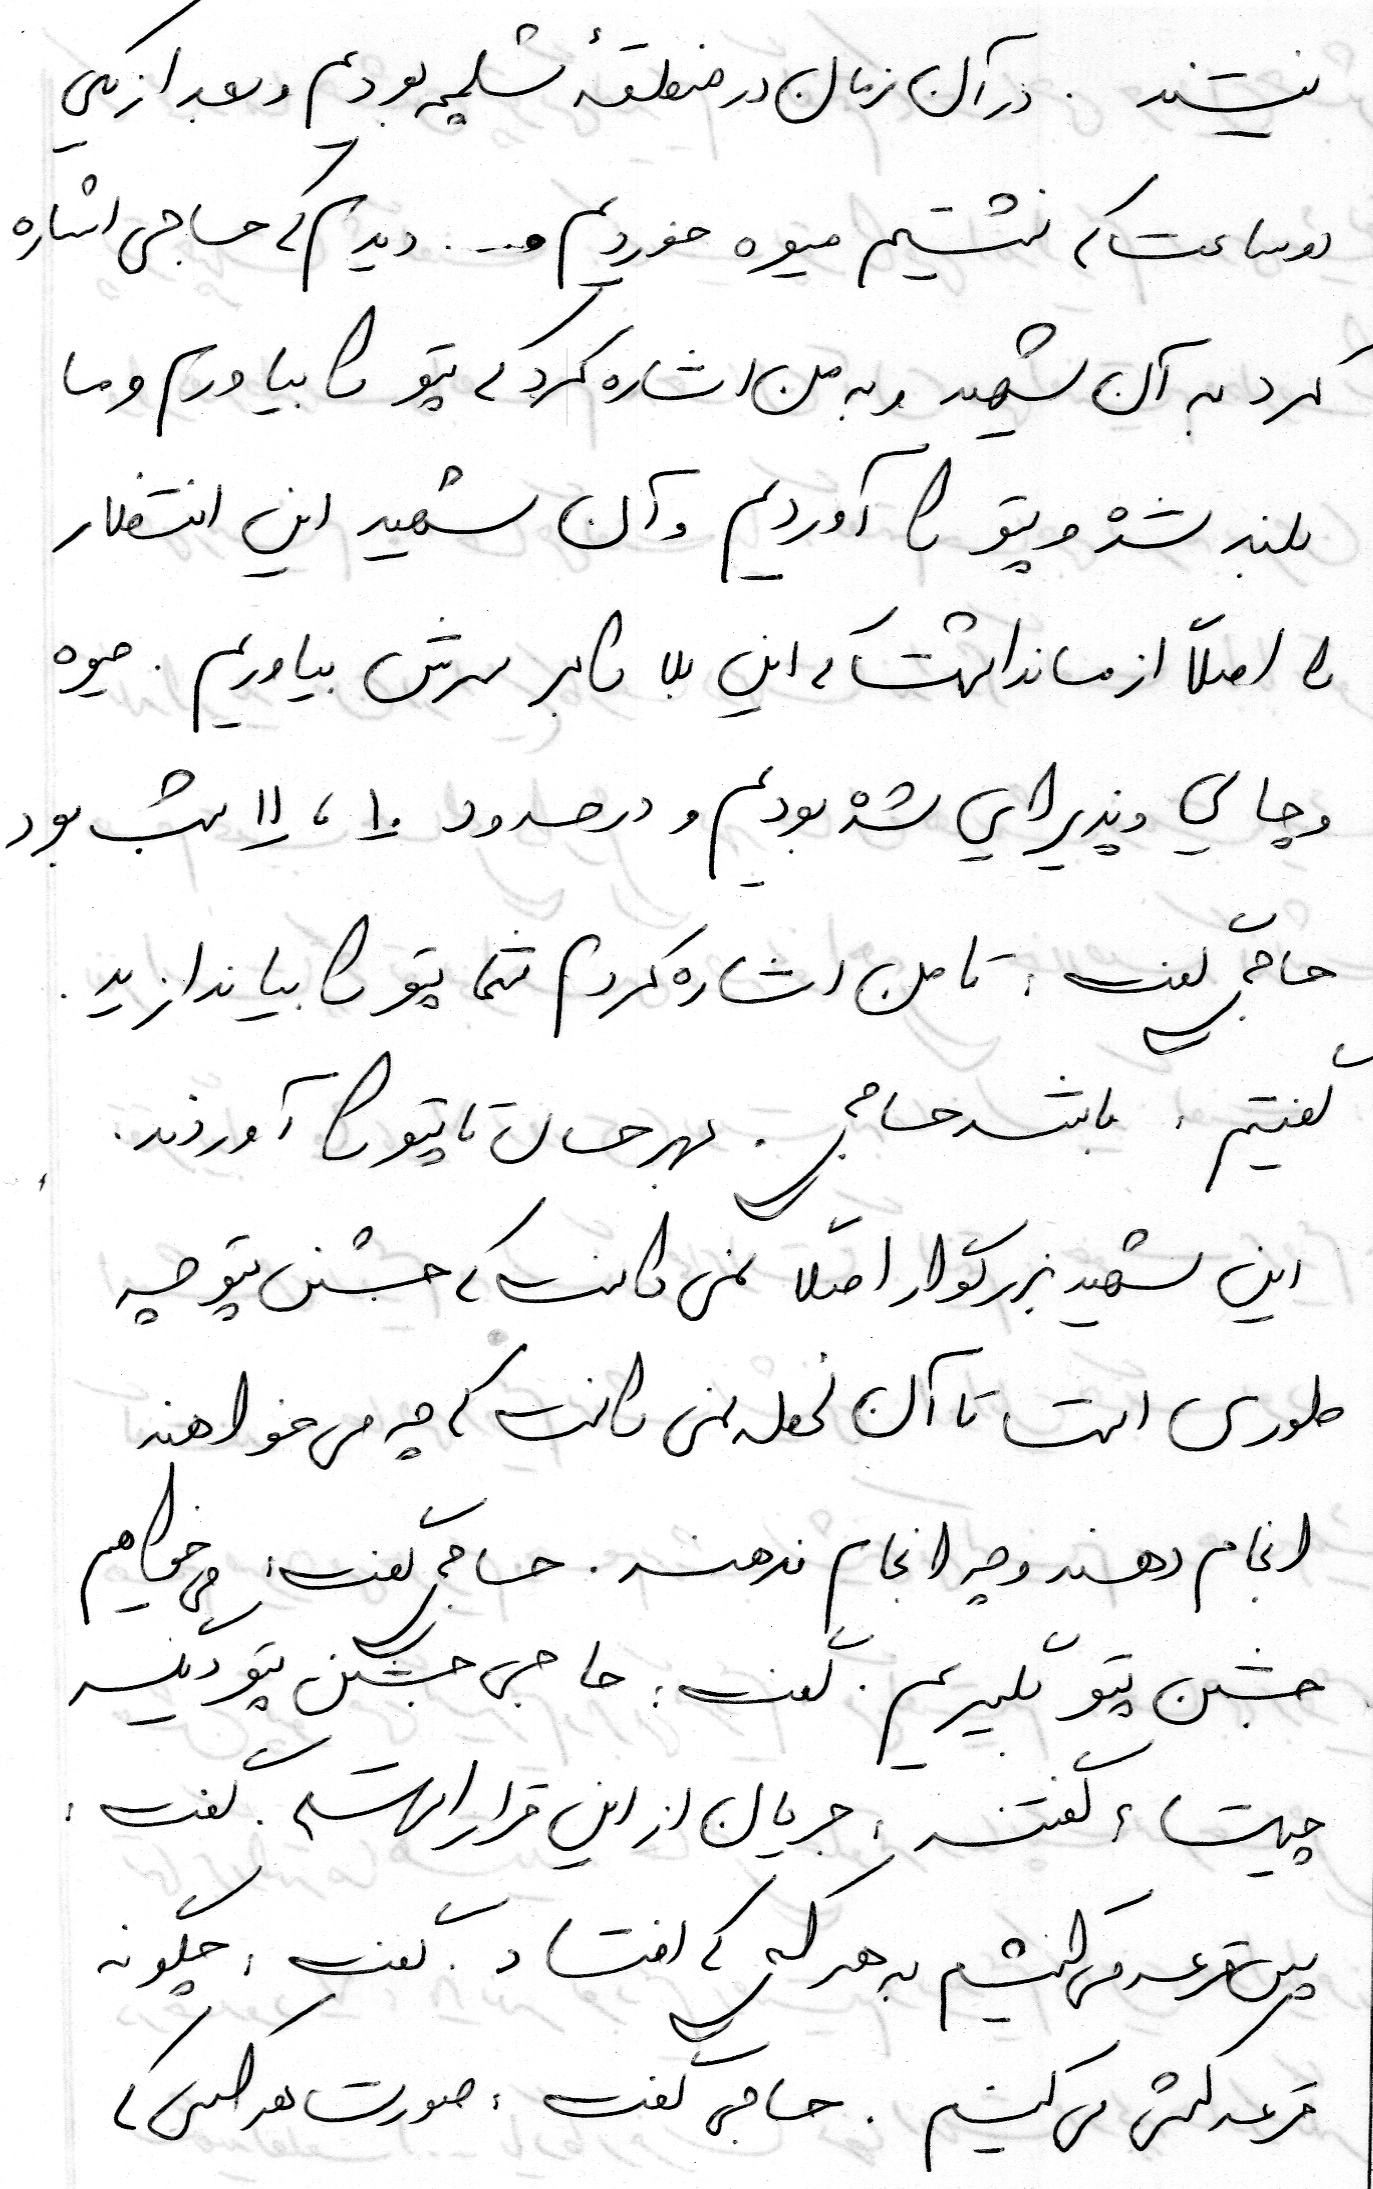 نیستند . در آن زمان در منطقهٔ شلمچه بودیم و بعد از یکی
دو ساعت که نشستیم میوه خوردیم و... دیدم که حاجی اشاره
کرد به آن شهید و به من اشاره کرد که پتو را بیاورم و ما
بلند شده و پتو را آوردیم و آن شهید این انتظار
را اصلاً از ما نداشت که این بلا را بر سرش بیاوریم . میوه
و چایی و پذیرایی شده بودیم و در حدود ۱۰ ، ۱۱ شب بود
حاجی گفت : تا من اشاره کردم شما پتو را بیاندازید .
گفتیم : باشد حاجی . بهرحال تا پتو را آوردند .
این شهید بزرگوار اصلاً نمی دانست که جشن پتو چه
طوری است تا آن لحظه نمی دانست که چه می خواهند
انجام دهند و چه انجام ندهند . حاجی گفت : می خواهیم
جشن پتو بگیریم . گفت : حاجی جشن پتو دیگه
چیست ؟ گفتند : جریان از این قرار است . گفت :
پس قرعه می کشیم به هر کسی که افتاد . گفت : چگونه
قرعه کشی می کنیم . حاجی گفت : صورت هر کسی که